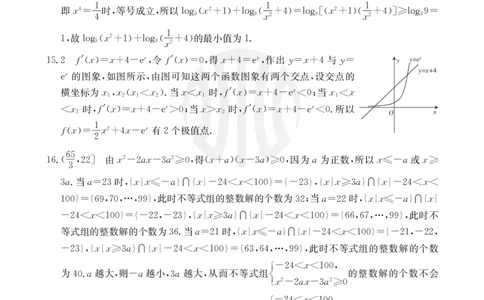 即 x⁴=1/4时,等号成立,所以 log₉(x²+1)+log₉(1/x²+4)=log₉[(x²+1)(1/x²+4)]≥log₉9=
1,故 log₉(x²+1)+log₉(1/x²+4)的最小值为 1.
15.2 f′(x)=x+4-eˣ,令 f′(x)=0,得 x+4=eˣ,作出 y=x+4 与 y=
eˣ 的图象,如图所示,由图可知这两个函数图象有两个交点,设交点的
横坐标为 x₁,x₂(x₁<x₂).当 x<x₁ 时,f′(x)=x+4-eˣ<0;当 x₁<x
<x₂ 时,f′(x)=x+4-eˣ>0;当 x>x₂ 时,f′(x)=x+4-eˣ<0.所以
f(x)=1/2x²+4x-eˣ 有 2 个极值点.
y
y=eˣ
y=x+4
O
x
16.(65/3,22] 由 x²-2ax-3a²≥0,得(x+a)(x-3a)≥0,因为 a 为正数,所以 x≤-a 或 x≥
3a.当 a=23 时,{x|x≤-a}∩{x|-24<x<100}={-23},{x|x≥3a}∩{x|-24<x<
100}={69,70,…,99},此时不等式组的整数解的个数为 32;当 a=22 时,{x|x≤-a}∩{x|
-24<x<100}={-22,-23},{x|x≥3a}∩{x|-24<x<100}={66,67,…,99},此时不
等式组的整数解的个数为 36.当 a=21 时,{x|x≤-a}∩{x|-24<x<100}={-21,-22,
-23},{x|x≥3a}∩{x|-24<x<100}={63,64,…,99},此时不等式组的整数解的个数
为 40.a 越大,则-a 越小,3a 越大,从而不等式组{-24<x<100, x²-2ax-3a²≥0 的整数解的个数不会
-24<x<100,